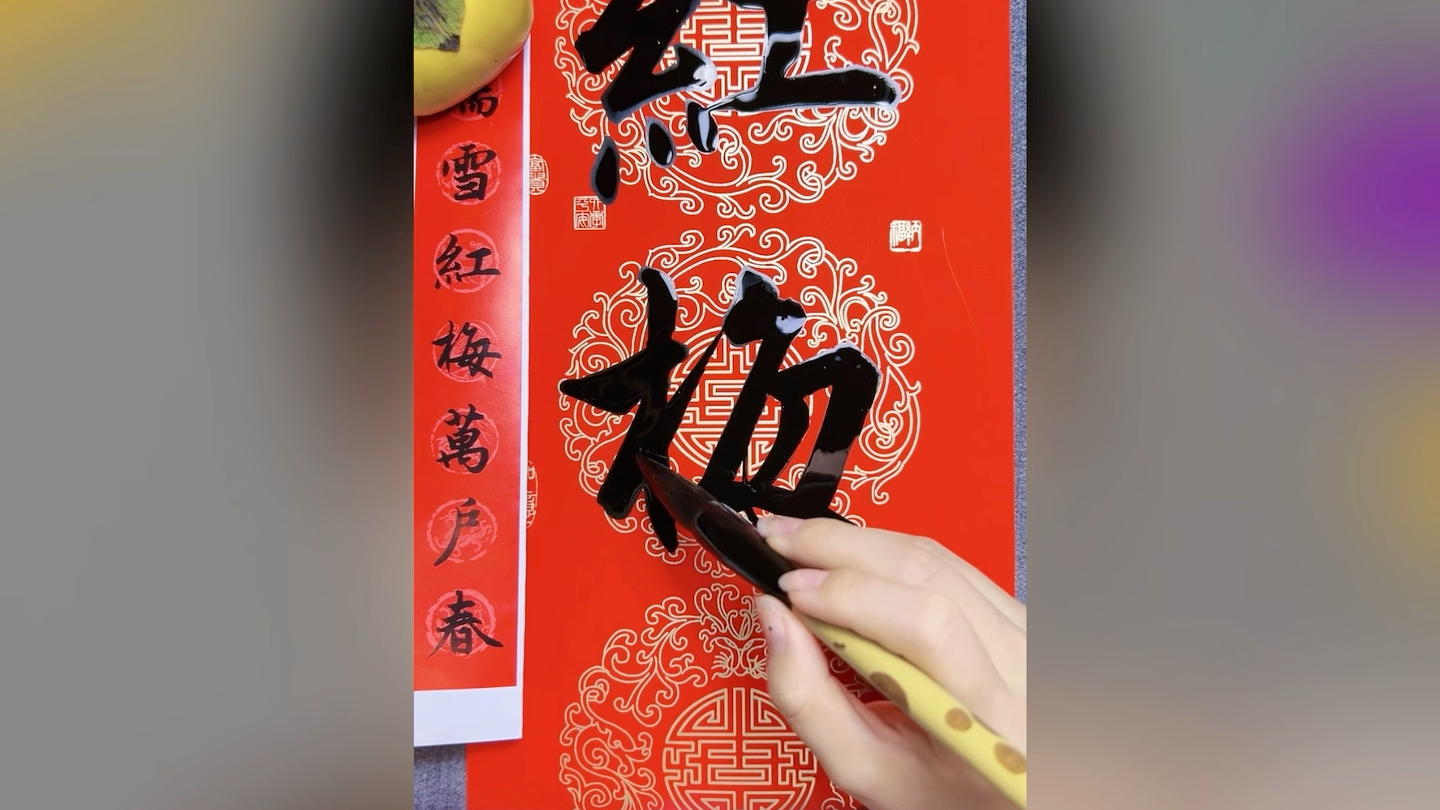 紅梅
雪紅梅萬戶春